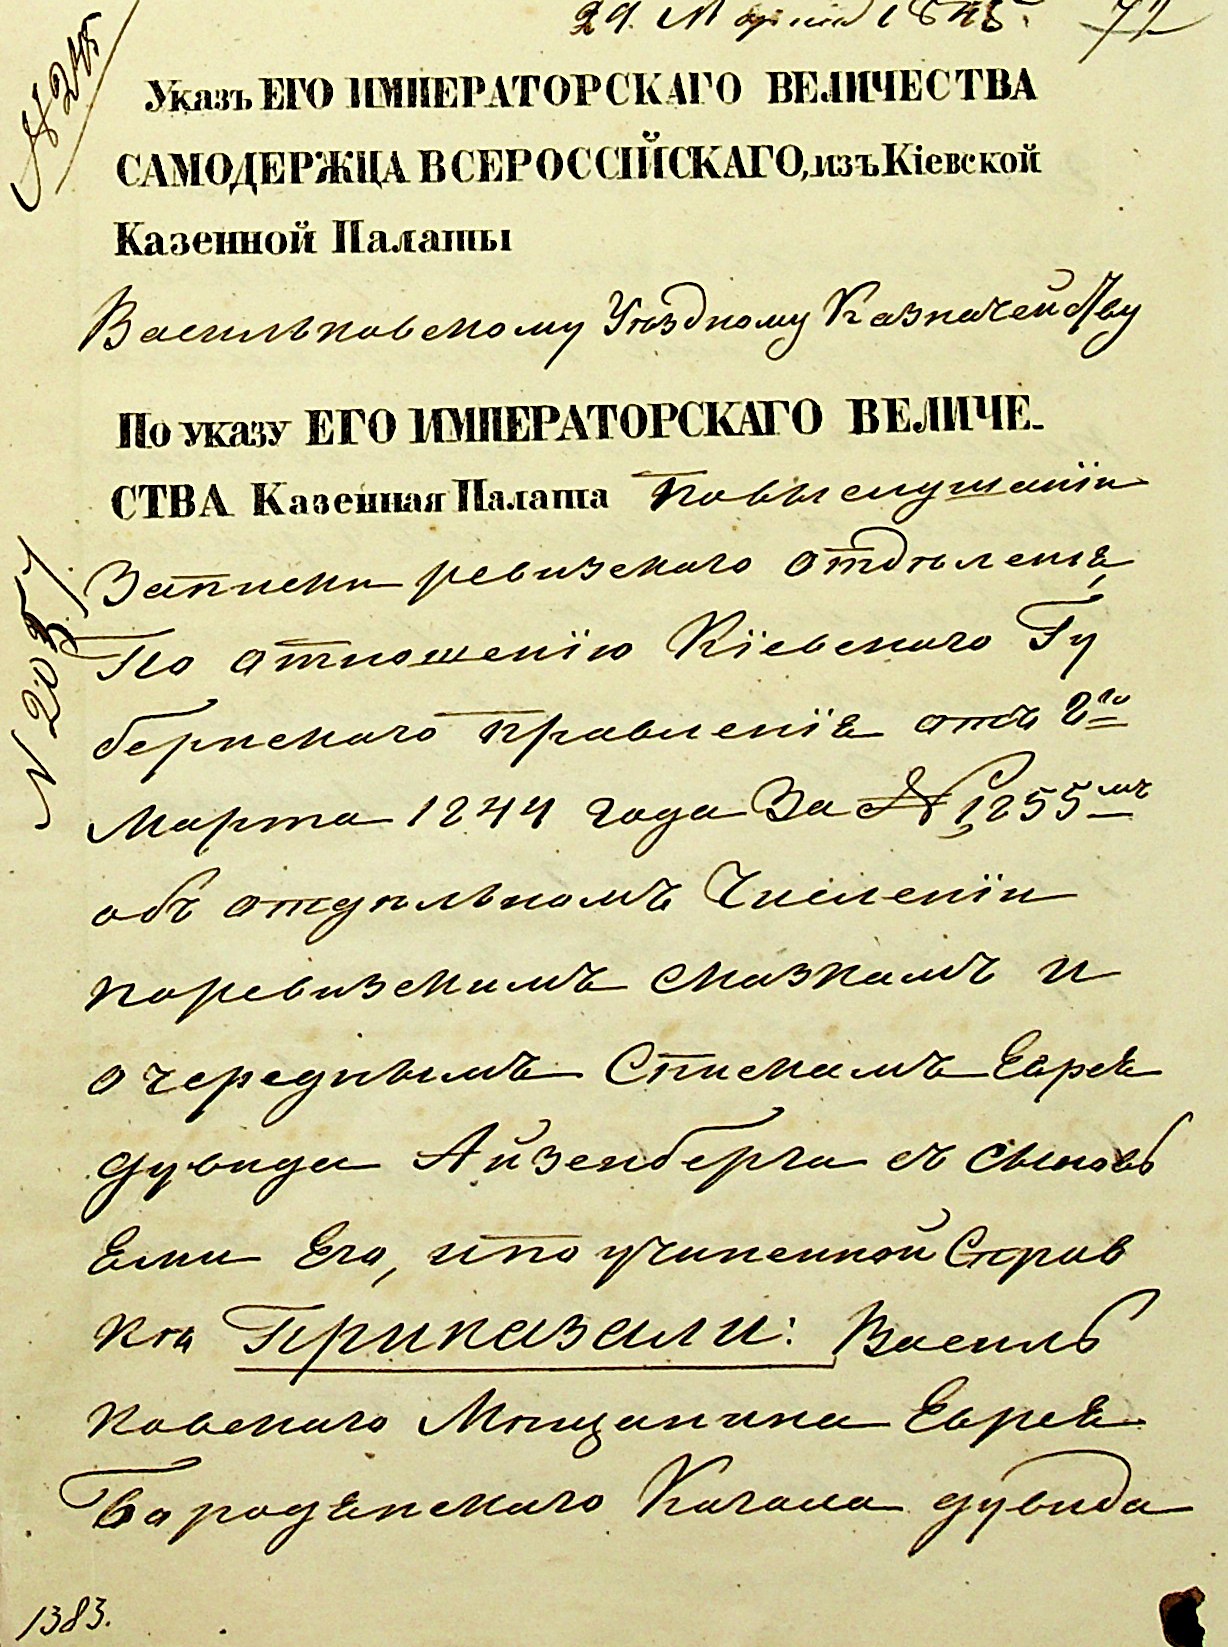 29. Марта 1845. 77
№ 245
Указъ ЕГО ИМПЕРАТОРСКАГО ВЕЛИЧЕСТВА
САМОДЕРЖЦА ВСЕРОССІЙСКАГО, изъ Кіевской
Казенной Палаты
Васильковскому Уѣздному Казначейству
По указу ЕГО ИМПЕРАТОРСКАГО ВЕЛИЧЕ-
СТВА Казенная Палата По выслушаніи
Записки ревизскаго отдѣленія,
№ 2057.
По отношенію Кіевскаго Гу
бернскаго правленія отъ 2го
Марта 1844 года За № 1255мъ
объ отдѣльномъ Численіи
по ревизскимъ сказкамъ и
очереднымъ Спискамъ Еврея
Дувида Айзенберга съ сыновь
Ями Его, и по учиненной Справ
кѣ Приказали: Василь
ковскаго Мѣщанина Еврея
Бородянскаго Кагала Дувида
1383.